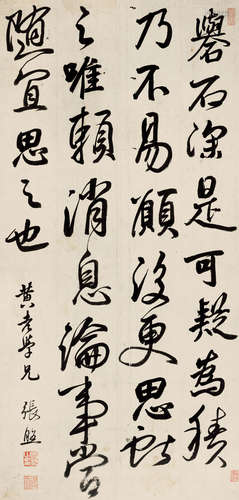 礜石深是可疑為積
乃不易願復更思
之唯賴消息論事當
隨宜思之也
黃老學兄
張照